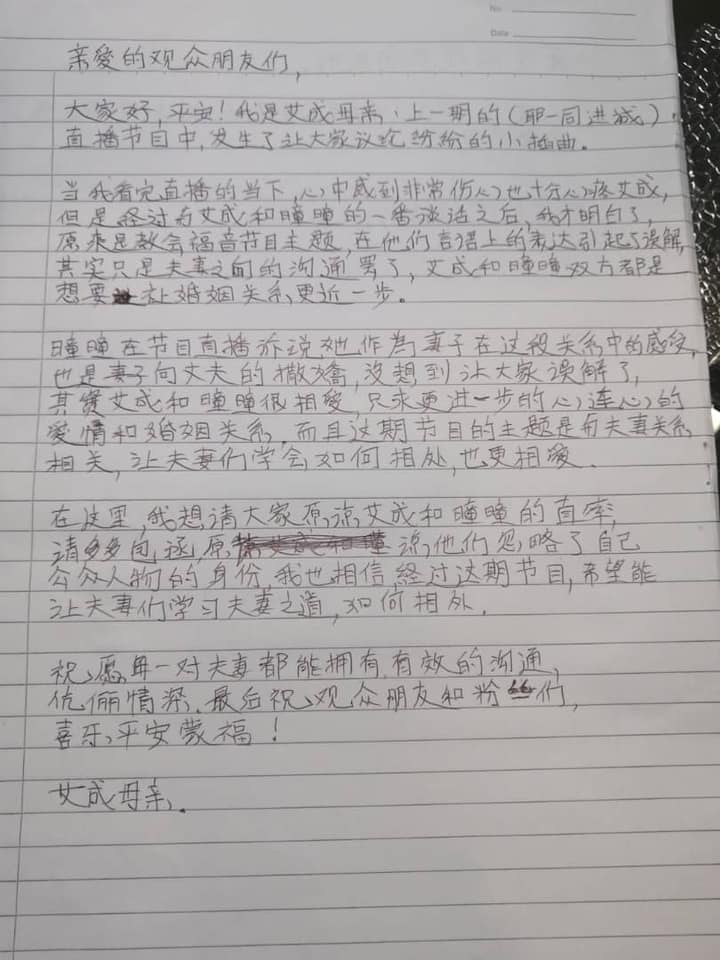 No
Date
亲爱的观众朋友们,
大家好,平安!我是艾成母亲、上一期的(耶一同进城)
直播节目中,发生了让大家议论纷纷的小插曲。
当我看完直播的当下,心中感到非常伤心也十分心疼艾成,
但是经过与艾成和瞳瞳的一番谈话之后,我才明白了,
原来是教会福音节目主题,在他们言语上的表达引起了误解,
其实只是夫妻之间的沟通罢了,艾成和瞳瞳双方都是
想要让婚姻关系更近一步。
瞳瞳在节目直播诉说她作為妻子在这段关系中的感受,
也是妻子向丈夫的撒嬌,没想到让大家误解了,
其實艾成和瞳瞳很相爱,只求更进一步的心连心的
爱情和婚姻关系,而且这期节目的主题是与夫妻关系
相关,让夫妻们学会如何相处,也更相爱.
在这里,我想请大家原谅艾成和瞳瞳的直率,
请多多包拯,原谅他们忽略了自己
公众人物的身份,我也相信经过这期节目,希望能
让夫妻们学习夫妻之道,如何相处.
祝愿每一对夫妻都能拥有有效的沟通、
伉俪情深.最后祝观众朋友和粉丝们,
喜乐、平安蒙福!
艾成母亲.